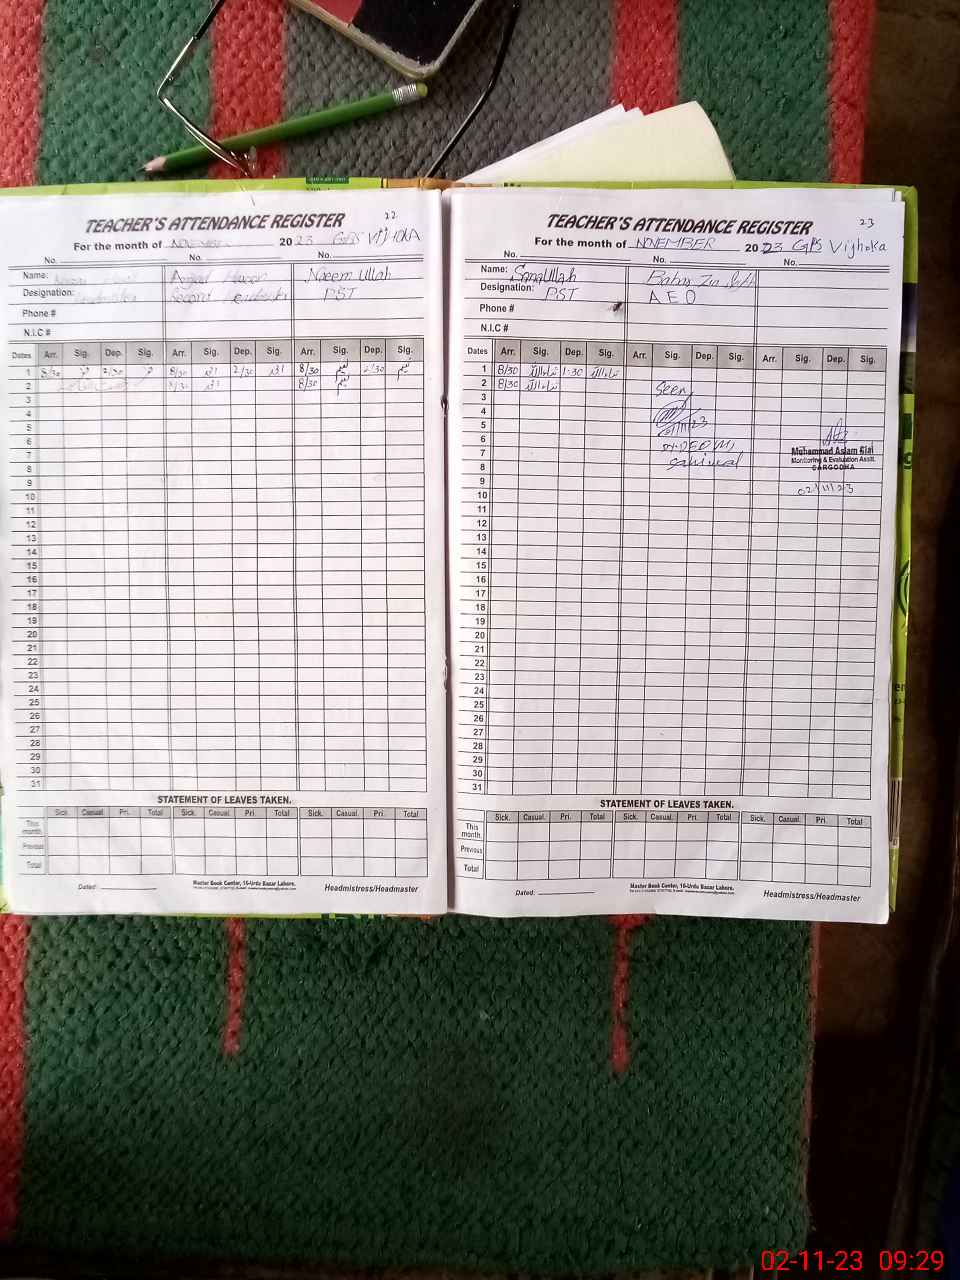 TEACHER'S ATTENDANCE REGISTER 22
For the month of NOVEMBER 2023 GPS VIJHOKA
No. No. No.
Name: Naeem Ullah
Designation: Second PST
Phone #
N.I.C #
Dates Arr. Sig. Dep. Sig. Arr. Sig. Dep. Sig. Arr. Sig. Dep. Sig.
1 8/30 2/30 8/30 2/30 8/30 نعیم 2/30 نعیم
2 8/30 8/30 نعیم
3
4
5
6
7
8
9
10
11
12
13
14
15
16
17
18
19
20
21
22
23
24
25
26
27
28
29
30
31
STATEMENT OF LEAVES TAKEN.
Sick. Casual. Pri. Total Sick. Casual. Pri. Total Sick. Casual. Pri. Total
This month.
Previous
Total
Dated:
Master Book Center, 16-Urdu Bazar Lahore.
Headmistress/Headmaster
TEACHER'S ATTENDANCE REGISTER 23
For the month of NOVEMBER 2023 GPS Vijhoka
No. No. No.
Name: SanaUllah
Designation: PST AEO
Phone #
N.I.C #
Dates Arr. Sig. Dep. Sig. Arr. Sig. Dep. Sig. Arr. Sig. Dep. Sig.
1 8/30 ثناءاللہ 1-30 ثناءاللہ
2 8/30 ثناءاللہ
3
4
5
6
7
8
9
10
11
12
13
14
15
16
17
18
19
20
21
22
23
24
25
26
27
28
29
30
31
Seen
Sahiwal
Muhammad Aslam Gial
Monitoring & Evaluation Assit.
SARGODHA
02/11/23
STATEMENT OF LEAVES TAKEN.
Sick. Casual. Pri. Total Sick. Casual. Pri. Total Sick. Casual. Pri. Total
This month.
Previous
Total
Dated:
Master Book Center, 16-Urdu Bazar Lahore.
Headmistress/Headmaster
02-11-23 09:29